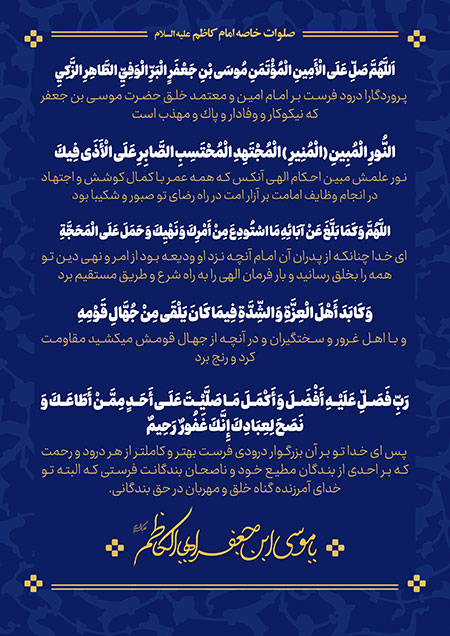 صلوات خاصه امام کاظم علیه السلام
اَللّهُمَّ صَلِّ عَلَى الْأَمِينِ الْمُؤْتَمَنِ مُوسَى بْنِ جَعْفَرٍ الْبَرِّ الْوَفِيِّ الطَّاهِرِ الزَّكِيِّ
پروردگارا درود فرست بر امام امین و معتمد خلق حضرت موسی بن جعفر
که نیکوکار و وفادار و پاک و مهذب است
النُّورِ الْمُبِينِ (الْمُنِيرِ) الْمُجْتَهِدِ الْمُحْتَسِبِ الصَّابِرِ عَلَى الْأَذَى فِيكَ
نور علمش مبین احکام الهی آنکس که همه عمر با کمال کوشش و اجتهاد
در انجام وظایف امامت بر آزار امت در راه رضای تو صبور و شکیبا بود
اللَّهُمَّ وَ كَمَا بَلَّغَ عَنْ آبَائِهِ مَا اسْتُودِعَ مِنْ أَمْرِكَ وَ نَهْيِكَ وَ حَمَلَ عَلَى الْمَحَجَّةِ
ای خدا چنانکه از پدران آن امام آنچه نزد او ودیعه بود از امر و نهی دین تو
همه را بخلق رسانید و بار فرمان الهی را به راه شرع و طریق مستقیم برد
وَ كَابَدَ أَهْلَ الْعِزَّةِ وَ الشِّدَّةِ فِيمَا كَانَ يَلْقَى مِنْ جُهَّالِ قَوْمِهِ
و با اهل غرور و سختگیران و در آنچه از جهال قومش میکشید مقاومت
کرد و رنج برد
رَبِّ فَصَلِّ عَلَيْهِ أَفْضَلَ وَ أَكْمَلَ مَا صَلَّيْتَ عَلَى أَحَدٍ مِمَّنْ أَطَاعَكَ وَ
نَصَحَ لِعِبَادِكَ إِنَّكَ غَفُورٌ رَحِيمٌ
پس ای خدا تو بر آن بزرگوار درودی فرست بهتر و کاملتر از هر درود و رحمت
که بر احدی از بندگان مطیع خود و ناصحان بندگانت فرستی که البته تو
خدای آمرزنده گناه خلق و مهربان در حق بندگانی.
یا موسی ابن جعفر ایها الکاظم